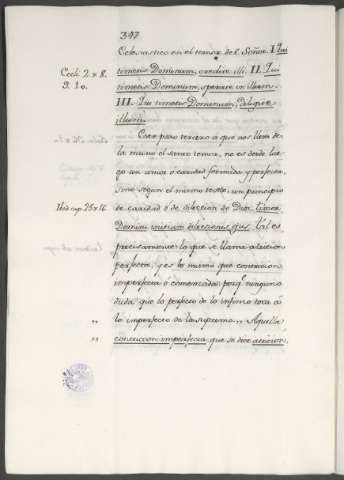 347
Eclesiastico en el temor de el Señor. I. Qui
timetis Dominum, credite illi. II. Qui
timetis Dominum, sperate in illum.
III. Qui timetis Dominum, diligite
illum.
Eccli. 2 v 8.
9. 10.
Este paso tercero a que nos lleva de
la mano el santo temor, no es desde lue-
go un amor o caridad formada y perfecta,
sino segun el mismo texto, un principio
de caridad ó de dileccion de Dios. Timor
Domini initium dilectionis ejus. Tal es
Ibid cap. 25 v 16
precisamente lo que se llama atricion
perfecta, y es lo mismo que contricion
imperfecta ó comenzada: porq.e ninguno
duda, que lo perfecto de lo infimo toca á
lo imperfecto de lo supremo. „ Aquella
„ contriccion imperfecta que se dice atricion,